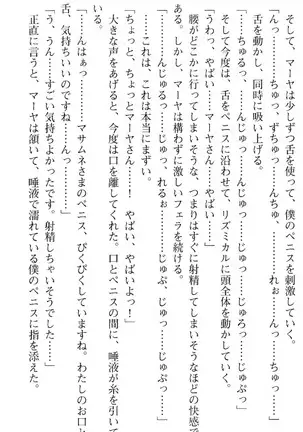 「んっ……んちゅっ、ずちゅっ……んっ、んちゅっ……」
そして、マーヤは少しずつ舌を使って、僕のペニスを刺激していく。
「んっ……んちゅっ、ずちゅんっ……れぉ……んっ……ちゅっ」
舌を動かし、同時に吸い上げる。
「ちゅるっ……んじゅっ……じゅるっ……じゅっ……」
そして今度は、舌をペニスに沿わせて、リズミカルに頭全体を動かしていく。
「うわっ、やばい……マーヤさん……やばい……」
腰がどこかに行ってしまいそうな、つまりはすぐに射精してしまいそうなほどの快感で
ある。しかし、マーヤは構わずに激しいフェラを続ける。
「……んっ……んじゅるっ……れるぉ……じゅぷ、じゅっ……じゅぷっ……」
……これは、これは本当にまずい。
「ちょっと、ちょっとマーヤさんっ……！　やばい、やばいよっ！」
大きな声をあげると、今度は口を離してくれた。口とペニスの間に、唾液が糸を引いて
いる。
「……んはぁっ……マサムネさまのペニス、ぴくぴくしていますね。わたしのお口と
舌、気持ちいいのですね……んっ……」
「う、うん……すごい気持ちよかったです。射精しちゃいそうでした……」
正直に言うと、マーヤは頷いて、唾液で濡れている僕のペニスに指を添えた。